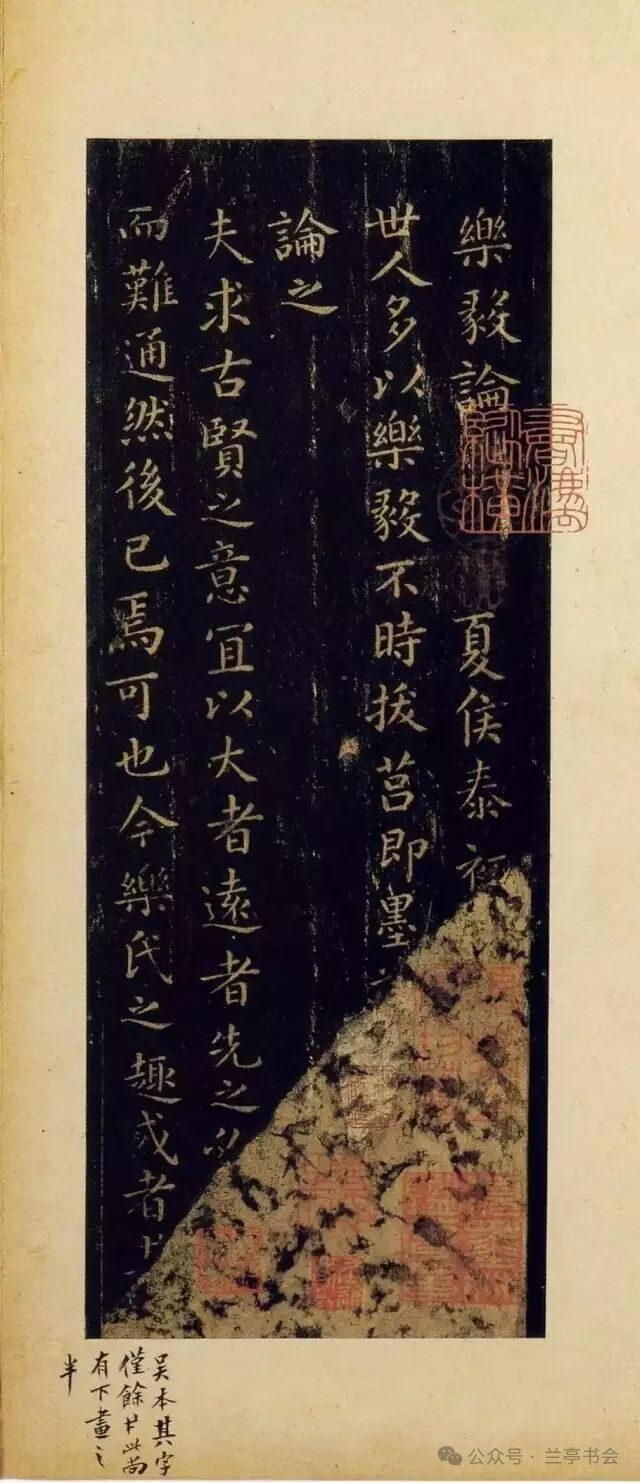 樂毅論
夏侯泰初
世人多以樂毅不時拔莒即墨
論之
夫求古賢之意宜以大者遠者先之必
而難通然後已焉可也今樂氏之趣或者
吴本其字
僅餘廿此尚
有下畫之
半
公众号·兰亭书会